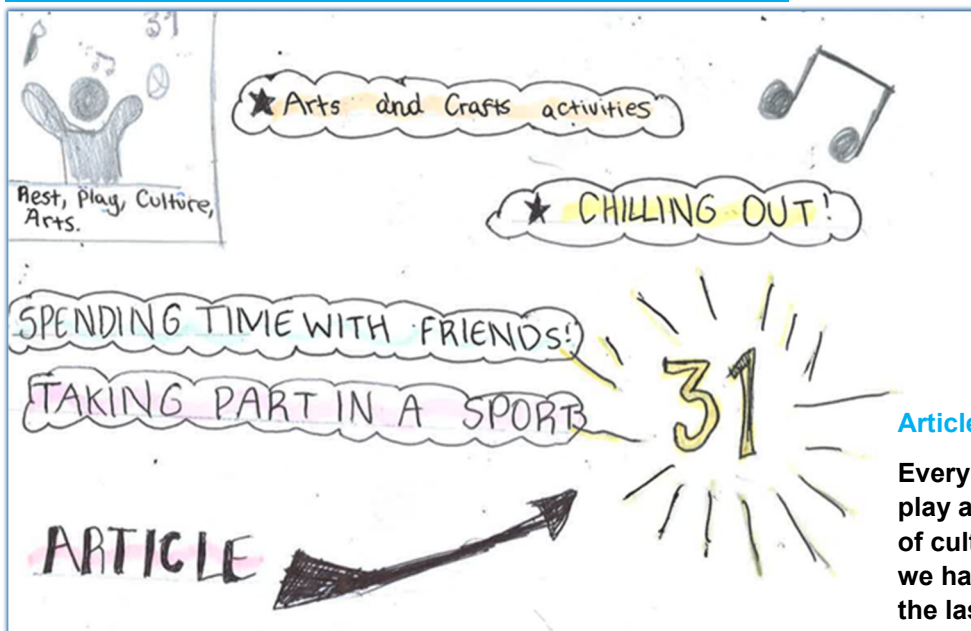 31
Rest, Play, Culture,
Arts.
★ Arts and Crafts activities
★ CHILLING OUT!
SPENDING TIME WITH FRIENDS!
TAKING PART IN A SPORT
31
ARTICLE
Article
Every
play a
of cult
we ha
the las